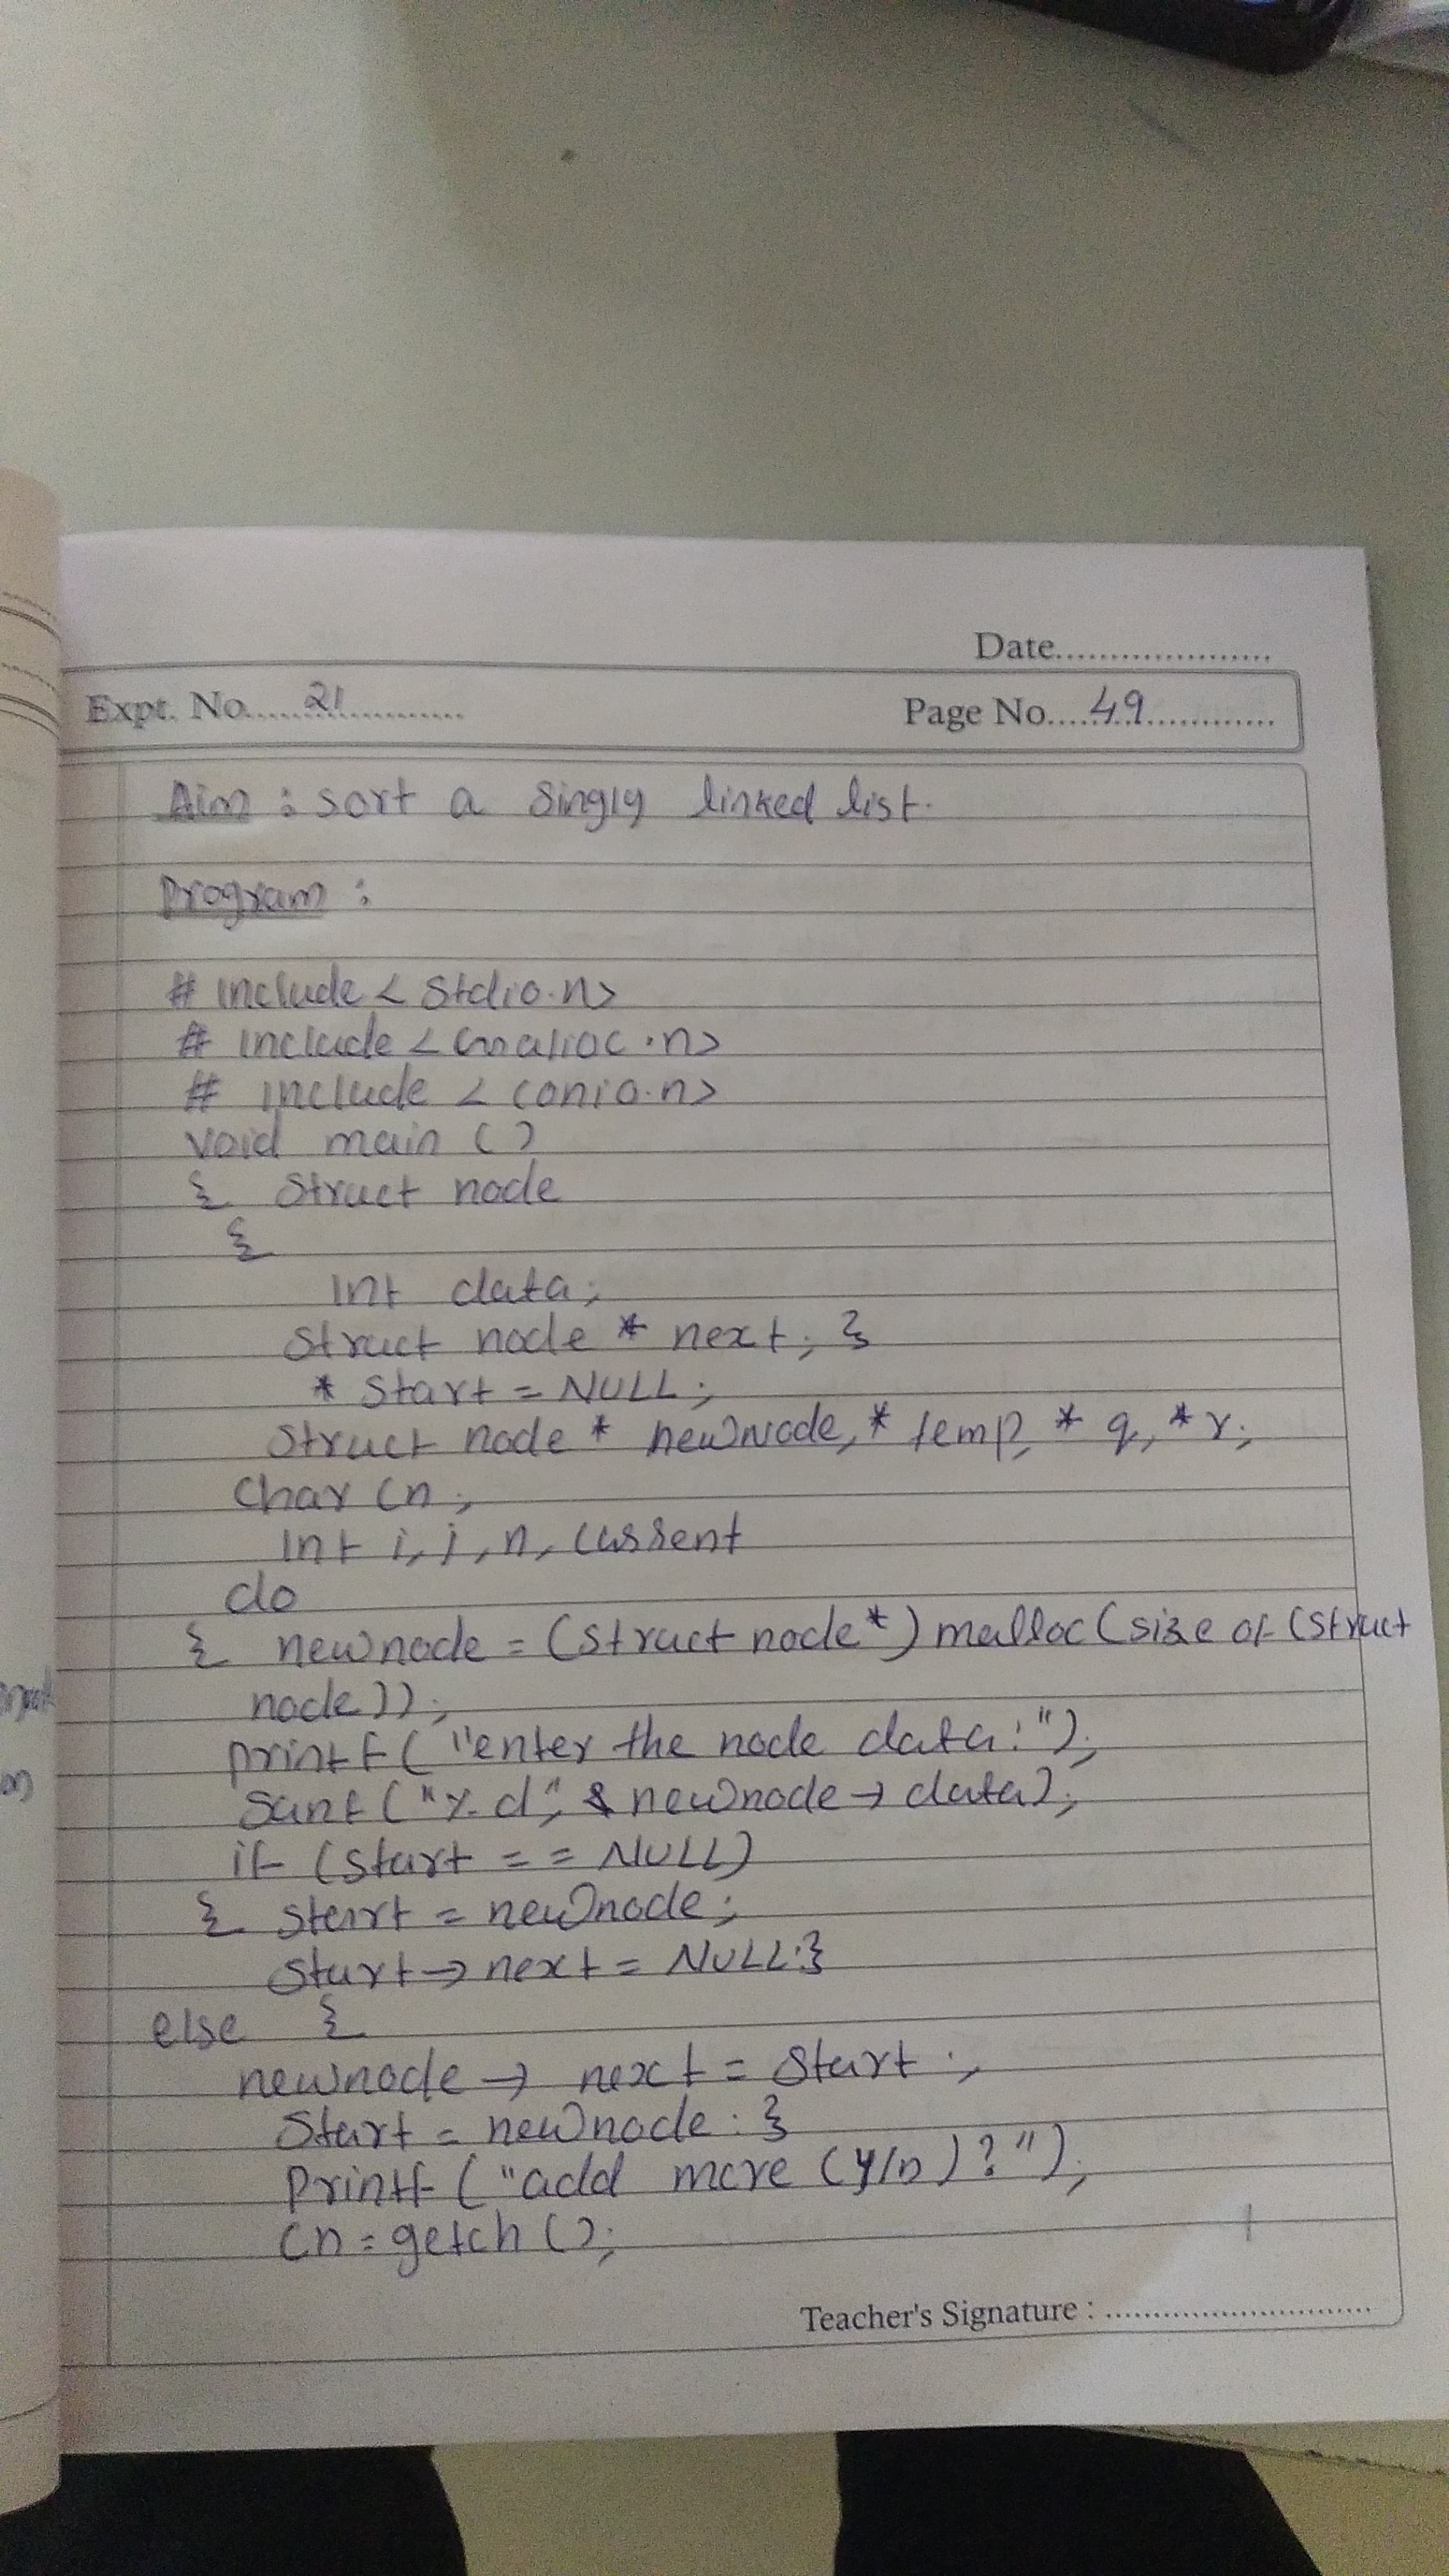 Date.....................
Expt. No.....21..............
Page No....49..............
Aim : sort a singly linked list.
Program :
# include < stdio.h>
# include < malloc.h>
# include < conio.h>
void main ( )
{ struct node
{
int data;
struct node * next; }
* start = NULL;
struct node * newnode, * temp, * q, * r;
char ch;
int i, j, n, current
do
{ newnode = (struct node*) malloc (size of (struct
node));
printf ( "enter the node data:");
Sanf ( "%d", & newnode → data);
if (start = = NULL)
{ start = newnode;
start → next = NULL;}
else {
newnode → next = start ;
start = newnode ; }
printf ( "add more (y/n)?");
ch = getch ( );
Teacher's Signature : ............................